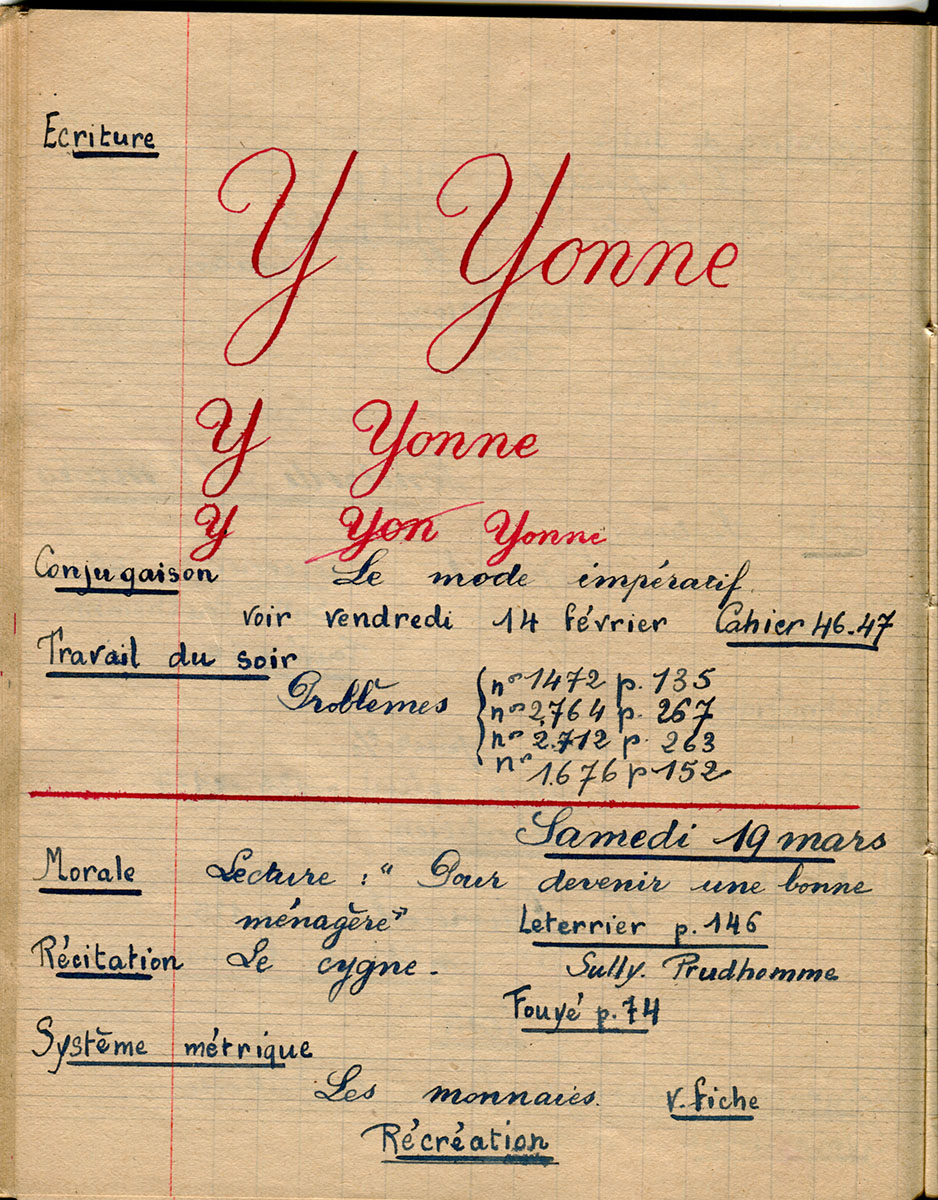 Ecriture
Y Yonne
Y Yonne
Y Yon Yonne
Conjugaison Le mode impératif.
voir vendredi 14 février Cahier 46-47
Travail du soir
Problèmes { nos 1472 p. 135
nos 2764 p. 267
nos 2.712 p. 263
nos 1.676 p 152
Samedi 19 mars
Morale Lecture : " Pour devenir une bonne
ménagère" Leterrier p. 146
Récitation Le cygne - Sully. Prudhomme
Fouyé p. 74
Système métrique
Les monnaies. v. fiche
Récréation